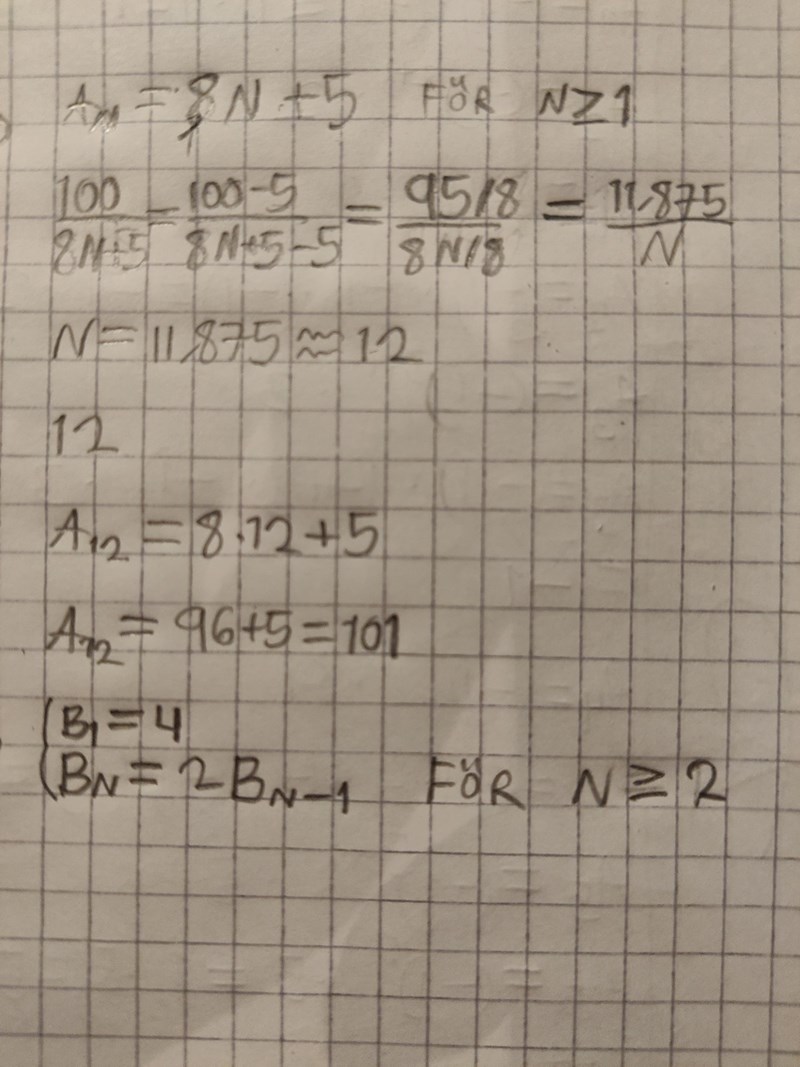 Aₙ = 8N + 5 FÖR N ≥ 1
100/8N+5 = 100-5/8N+5-5 = 95/8/8N/8 = 11,875/N
N = 11,875 ≈ 12
12
A₁₂ = 8·12+5
A₁₂ = 96+5 = 101
B₁ = 4
B_N = 2B_N-1 FÖR N ≥ 2